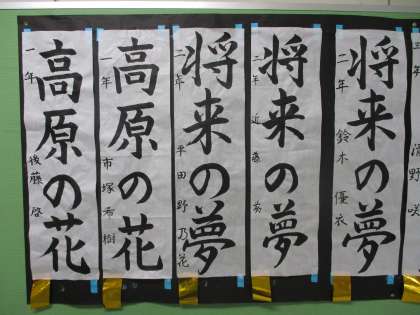 高原の花
一年 後藤 啓
高原の花
一年 市塚 希樹
将来の夢
二年 平田野 乃花
将来の夢
二年 近藤
将来の夢
二年 鈴木 優衣
三年 濱野 咲